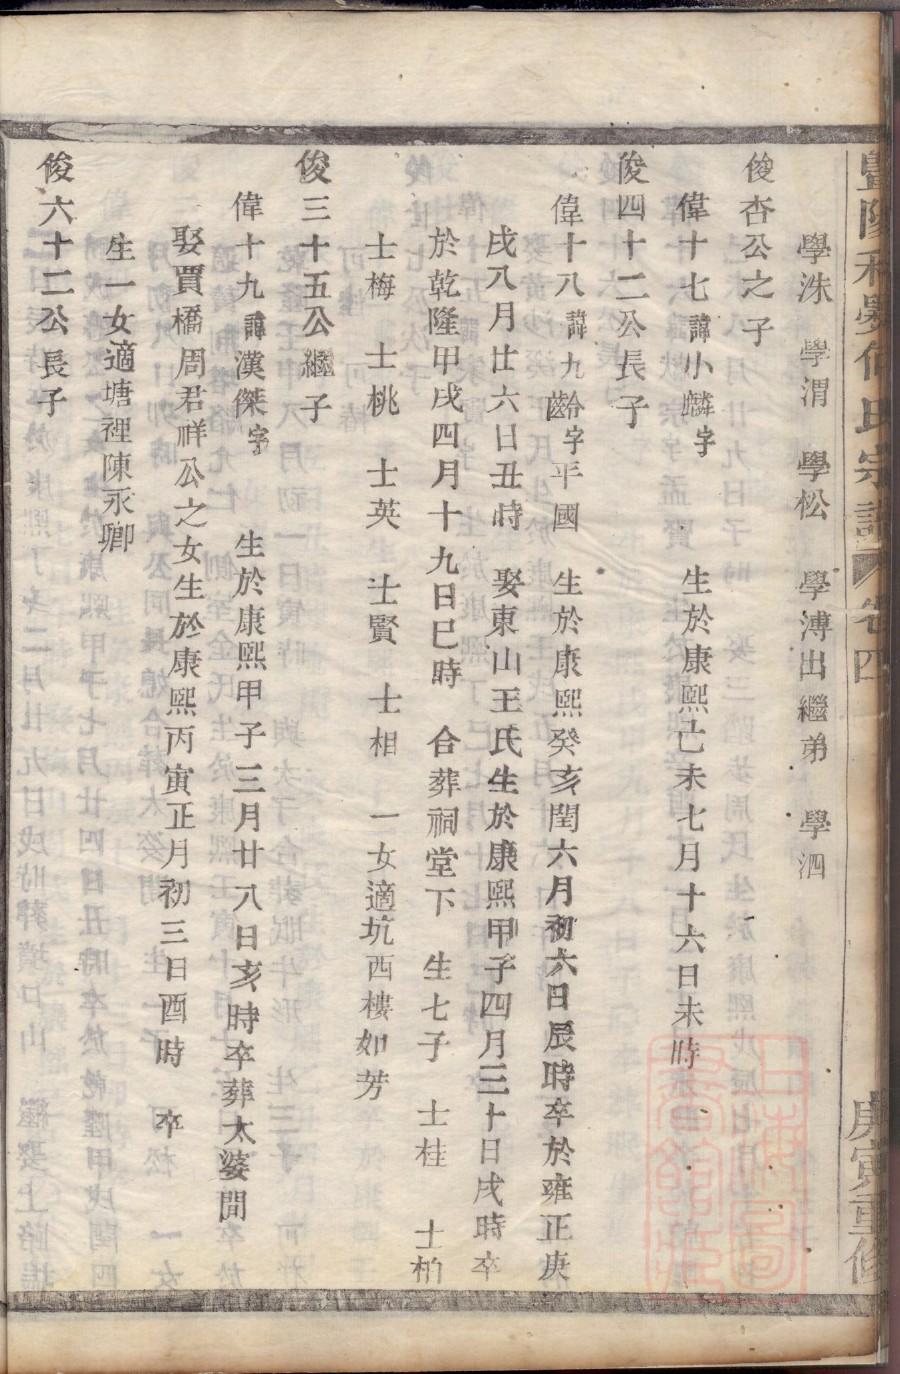 宗譜 卷四 庚寅重修
學洙 學渭 學松 學溥出繼弟 學泗
俊杏公之子
偉十七諱小麟字 生於康熙己未七月十六日未時
俊四十二公長子
偉十八諱九齡字平國 生於康熙癸亥閏六月初六日辰時卒於雍正庚
戌八月廿六日丑時 娶東山王氏生於康熙甲子四月三十日戌時卒
於乾隆甲戌四月十九日巳時 合葬祠堂下 生七子 士桂 士柏
士梅 士桃 士英 士賢 士相 一女適坑西樓如芳
俊三十五公繼子
偉十九諱漢傑字 生於康熙甲子三月廿八日亥時卒葬太婆閒
娶賈橋周君祥公之女生於康熙丙寅正月初三日酉時 卒
生一女適塘裡陳永卿
俊六十二公長子